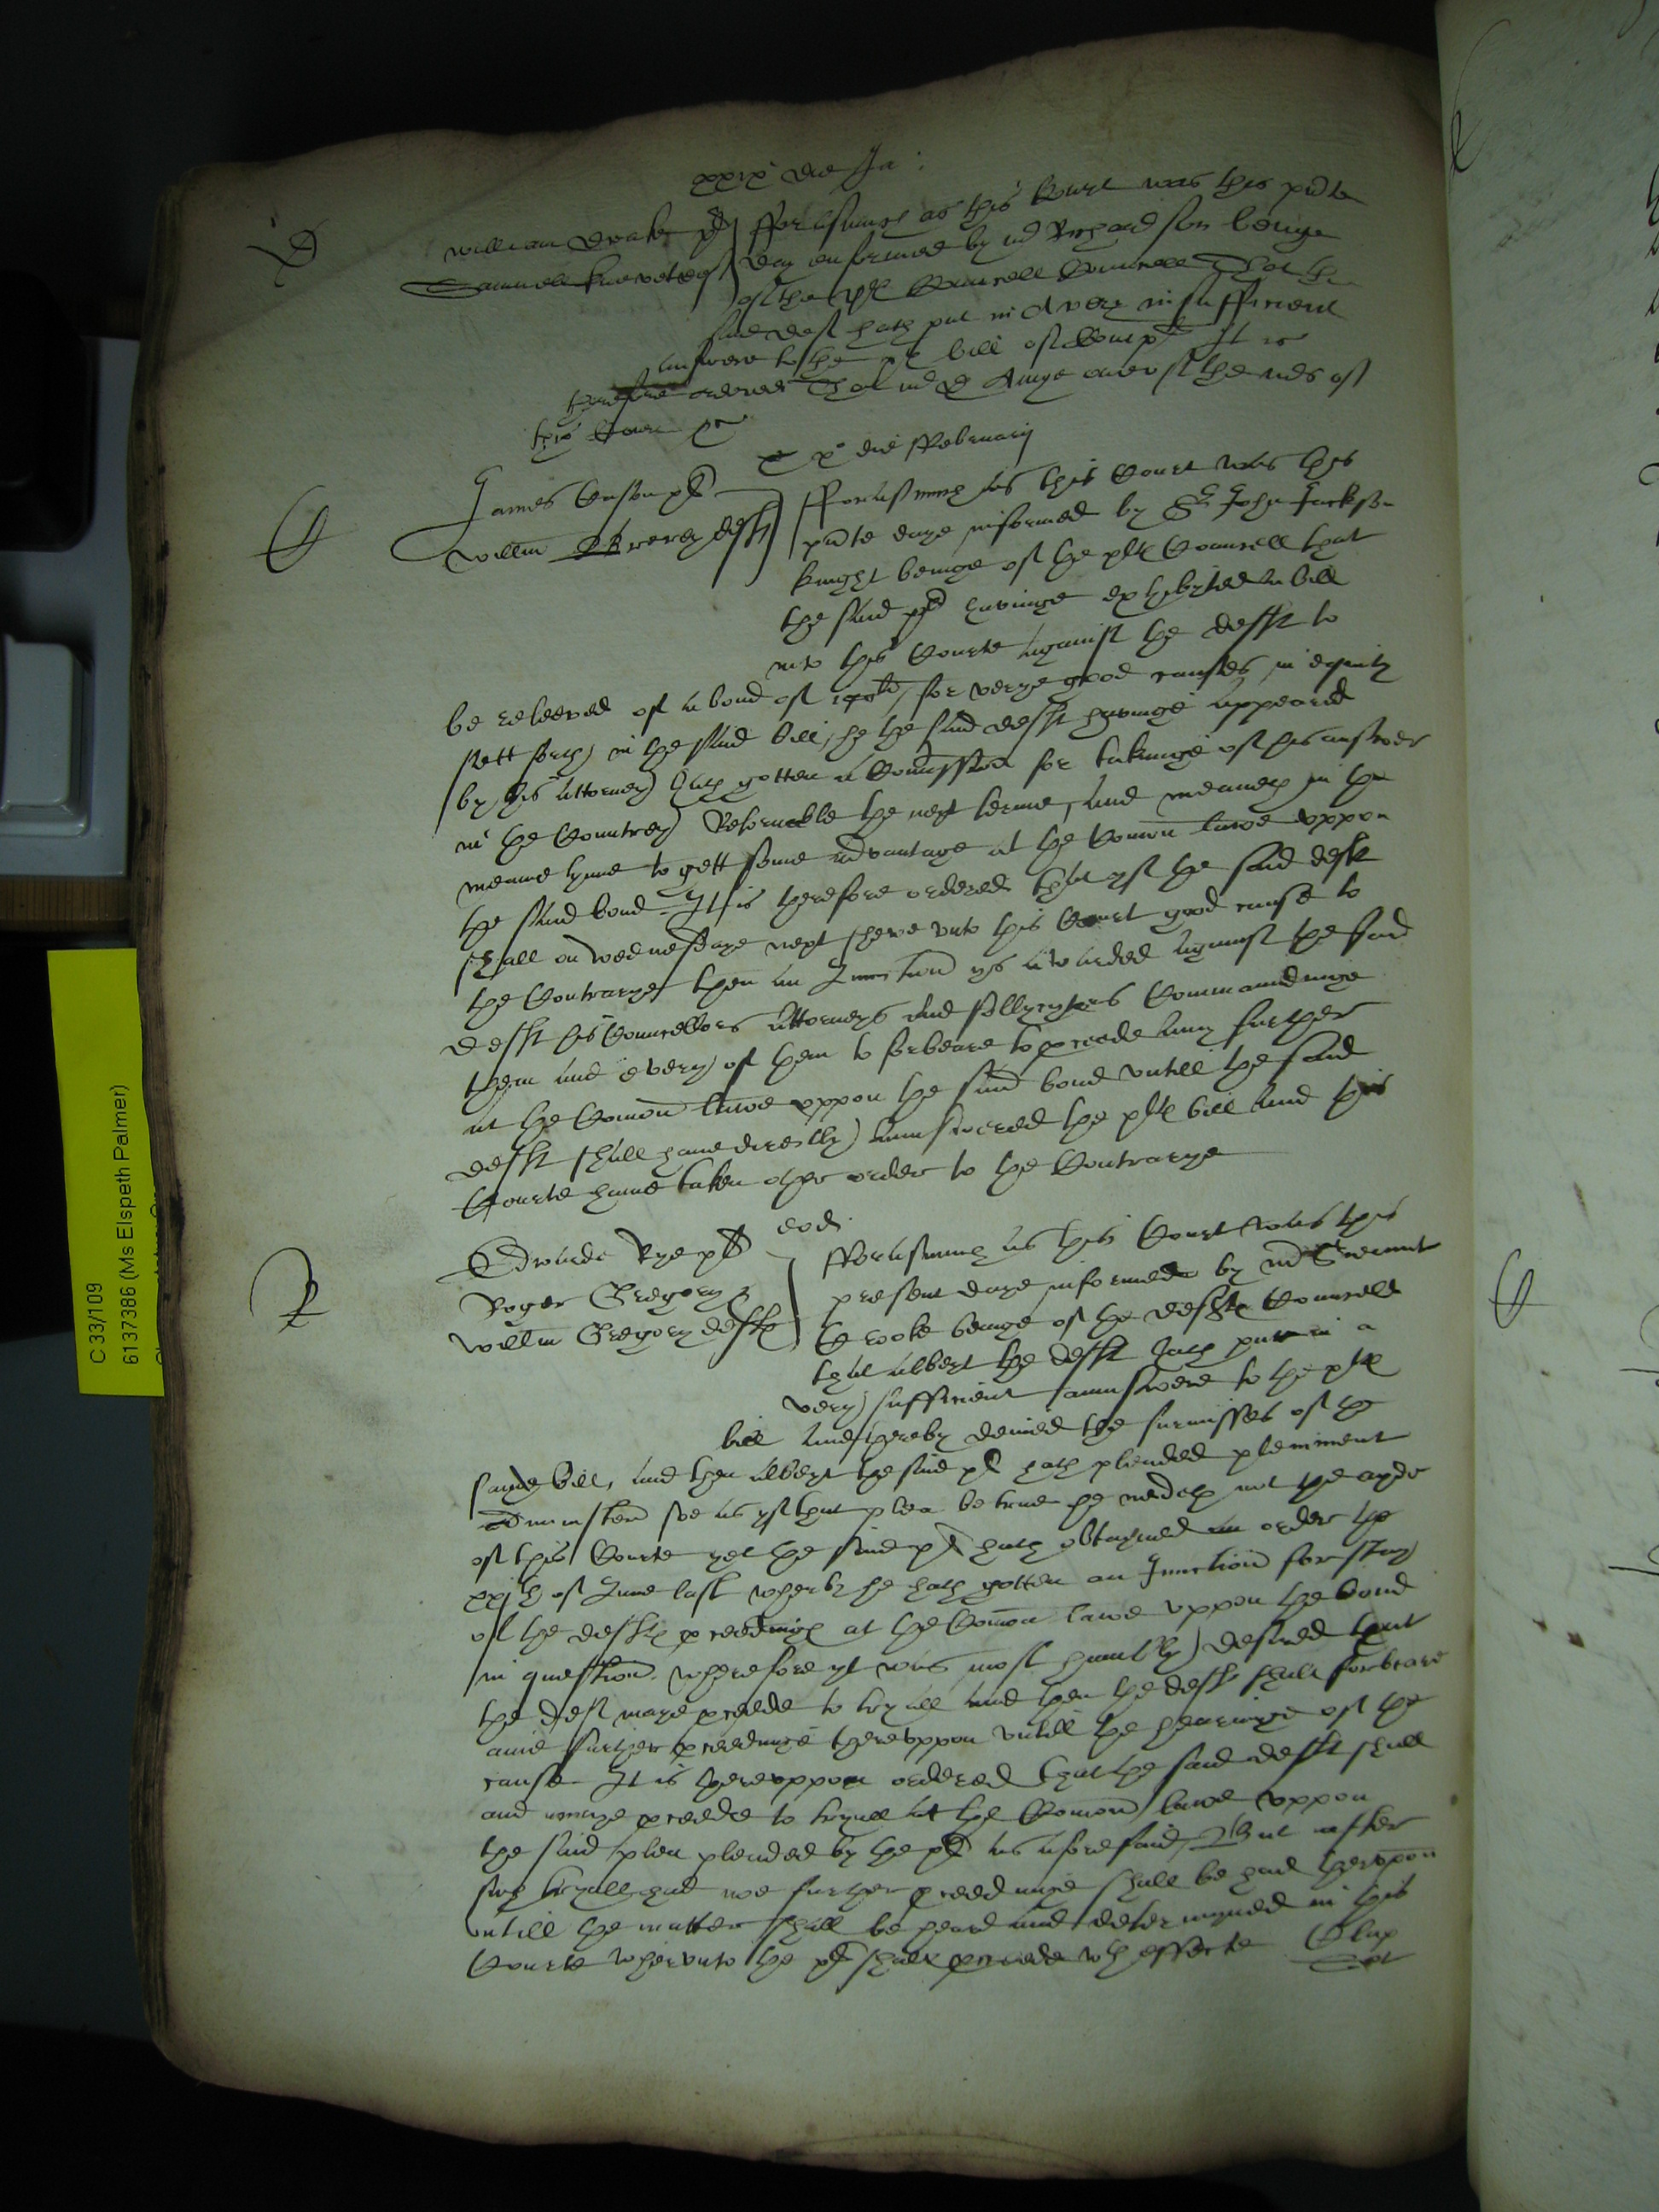 xxix die Ja:
D
William Drake plt fforasmuch as this Court was this pnte
Samuell deft day enformed by mr Richardson beinge
of the plts Councell Councell That the
said deft hath put in A very insufficient
answere to the plts bill of Compt It is
therefore ordered That mr D Amye consider the
this Court
x° die ffebruarij
C
James plt fforasmuch as this Court was this
Willm deft pnte daye informed by Sr John Jackson
knight beinge of the plts Councell that
the said plt havinge exhybited a bill
into this Courte against the defft to
be releeved of a bond of for verye good causes in equity
sett forth in the said bill, he the said defft havinge appeared
by his Attorney hath gotten a Comission for takinge of his answer
in the Countrey Retornable the next terme, and meaneth in the
meane tyme to gett some advantage at the Comon lawe uppon
the said bond It is therefore ordered that yf the said deft
shall on wednesdaye next shewe unto this Court good cause to
the Contrarye then an Iniunction ys awarded against the said
defft his Councellors Attorneys and sollycyters Commaundinge
them and every of them to forbeare to proceede any further
at the Comon lawe uppon the said bond untill the said
defft shall have directly aunswered the plts bill and this
Courte have taken other order to the Contrarye
eod
R
Edwarde Rye plt fforasmuch as this Court was this
Roger Gregory & present daye informed by mr
Willm Gregory deffts Crooke beinge of the deffts Councell
that albeyt the defft hath put in a
very sufficient aunswere to the plts
bill and thereby denied the surmisses of the
same bill, and then albeyt the said plt hath pleaded plene
administravit soe as yf that plea be true he nedeth not the ayde
of this Courte yet the said plt hath obtayned an order the
xxjth of June last wherby he hath gotten an Iniunction for stay
of the deffts proceedinge at the Comon lawe uppon the bond
in question. wherefore yt was most humbly desired that
the deft maye proceede to tryall and then the deft shall forbeare
anie further proceedinge thereuppon untill the hearinge of the
cause It is thereuppon ordered that the said defft shall
and maye proceede to tryall at the Comon lawe uppon
the said plea pleaded by the plt as aforesaid, But after
such tryall had noe further proceedinge shall be had theruppon
untill the matter shall be heard and determyned in this
Courte wherunto the plt shall proceede wth effecte
C 33/109
6137386 (Ms Elspeth Palmer)